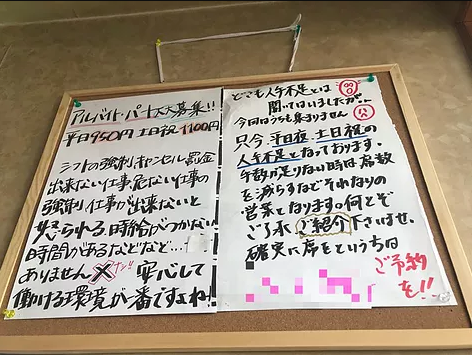 アルバイト・パート大募集!!
平日950円 土日祝1100円
シフトの強制キャンセル罰金
出来ない仕事危ない仕事の
強制仕事が出来ないと
怒られる時給がつかない
時間があるなどなど…
ありません 安心して
働ける環境が一番ですよね!!
どこも人手不足とは
聞いてはいましたが…
今回はうちも集まりません
只今平日夜、土日祝の
人手不足となっております。
手数が足りない時は席数
を減らすなどそれなりの
営業となります。何とぞ
ご了承 ご紹介 下さいませ。
確実に席をというちは
ご予約
を!!